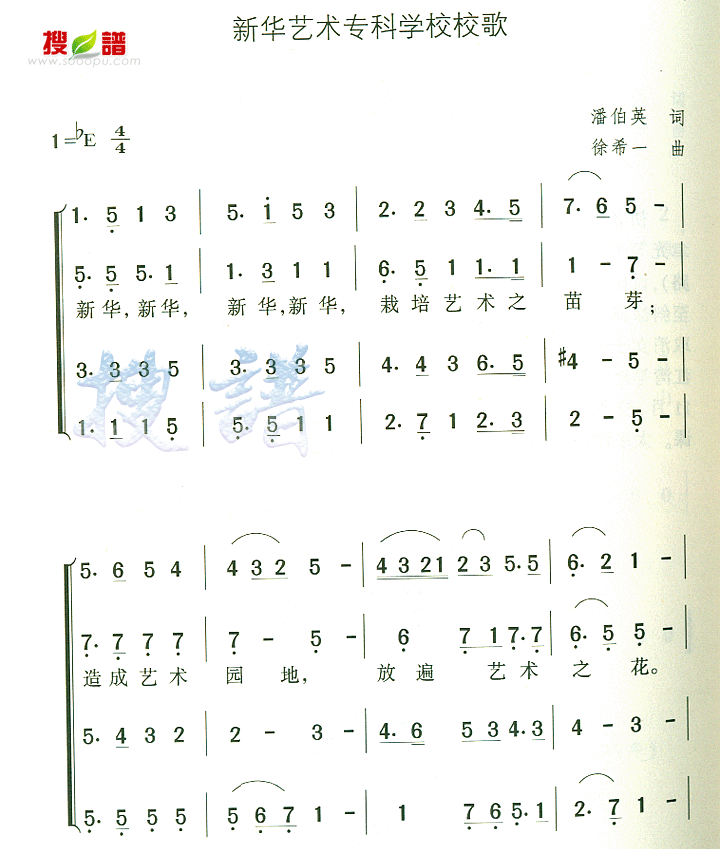 搜譜
www.sooopu.com
新华艺术专科学校校歌
潘伯英 词
1=♭E 4/4
徐希一 曲
1. 5 1 3 | 5. i 5 3 | 2. 2 3 4. 5 | 7. 6 5 - |
5. 5 5. 1 | 1. 3 1 1 | 6. 5 1 1. 1 | 1 - 7 - |
新华,新华, 新华,新华, 栽培艺术之 苗 芽;
3. 3 3 5 | 3. 3 3 5 | 4. 4 3 6. 5 | #4 - 5 - |
1. 1 1 5 | 5. 5 1 1 | 2. 7 1 2. 3 | 2 - 5 - |
搜譜
5. 6 5 4 | 4 3 2 5 - | 4 3 2 1 2 3 5. 5 | 6. 2 1 - |
7. 7 7 7 | 7 - 5 - | 6 7 1 7. 7 | 6. 5 5 - |
造成艺术 园 地, 放遍 艺术 之 花。
5. 4 3 2 | 2 - 3 - | 4. 6 5 3 4. 3 | 4 - 3 - |
5. 5 5 5 | 5 6 7 1 - | 1 7 6 5. 1 | 2. 7 1 - |